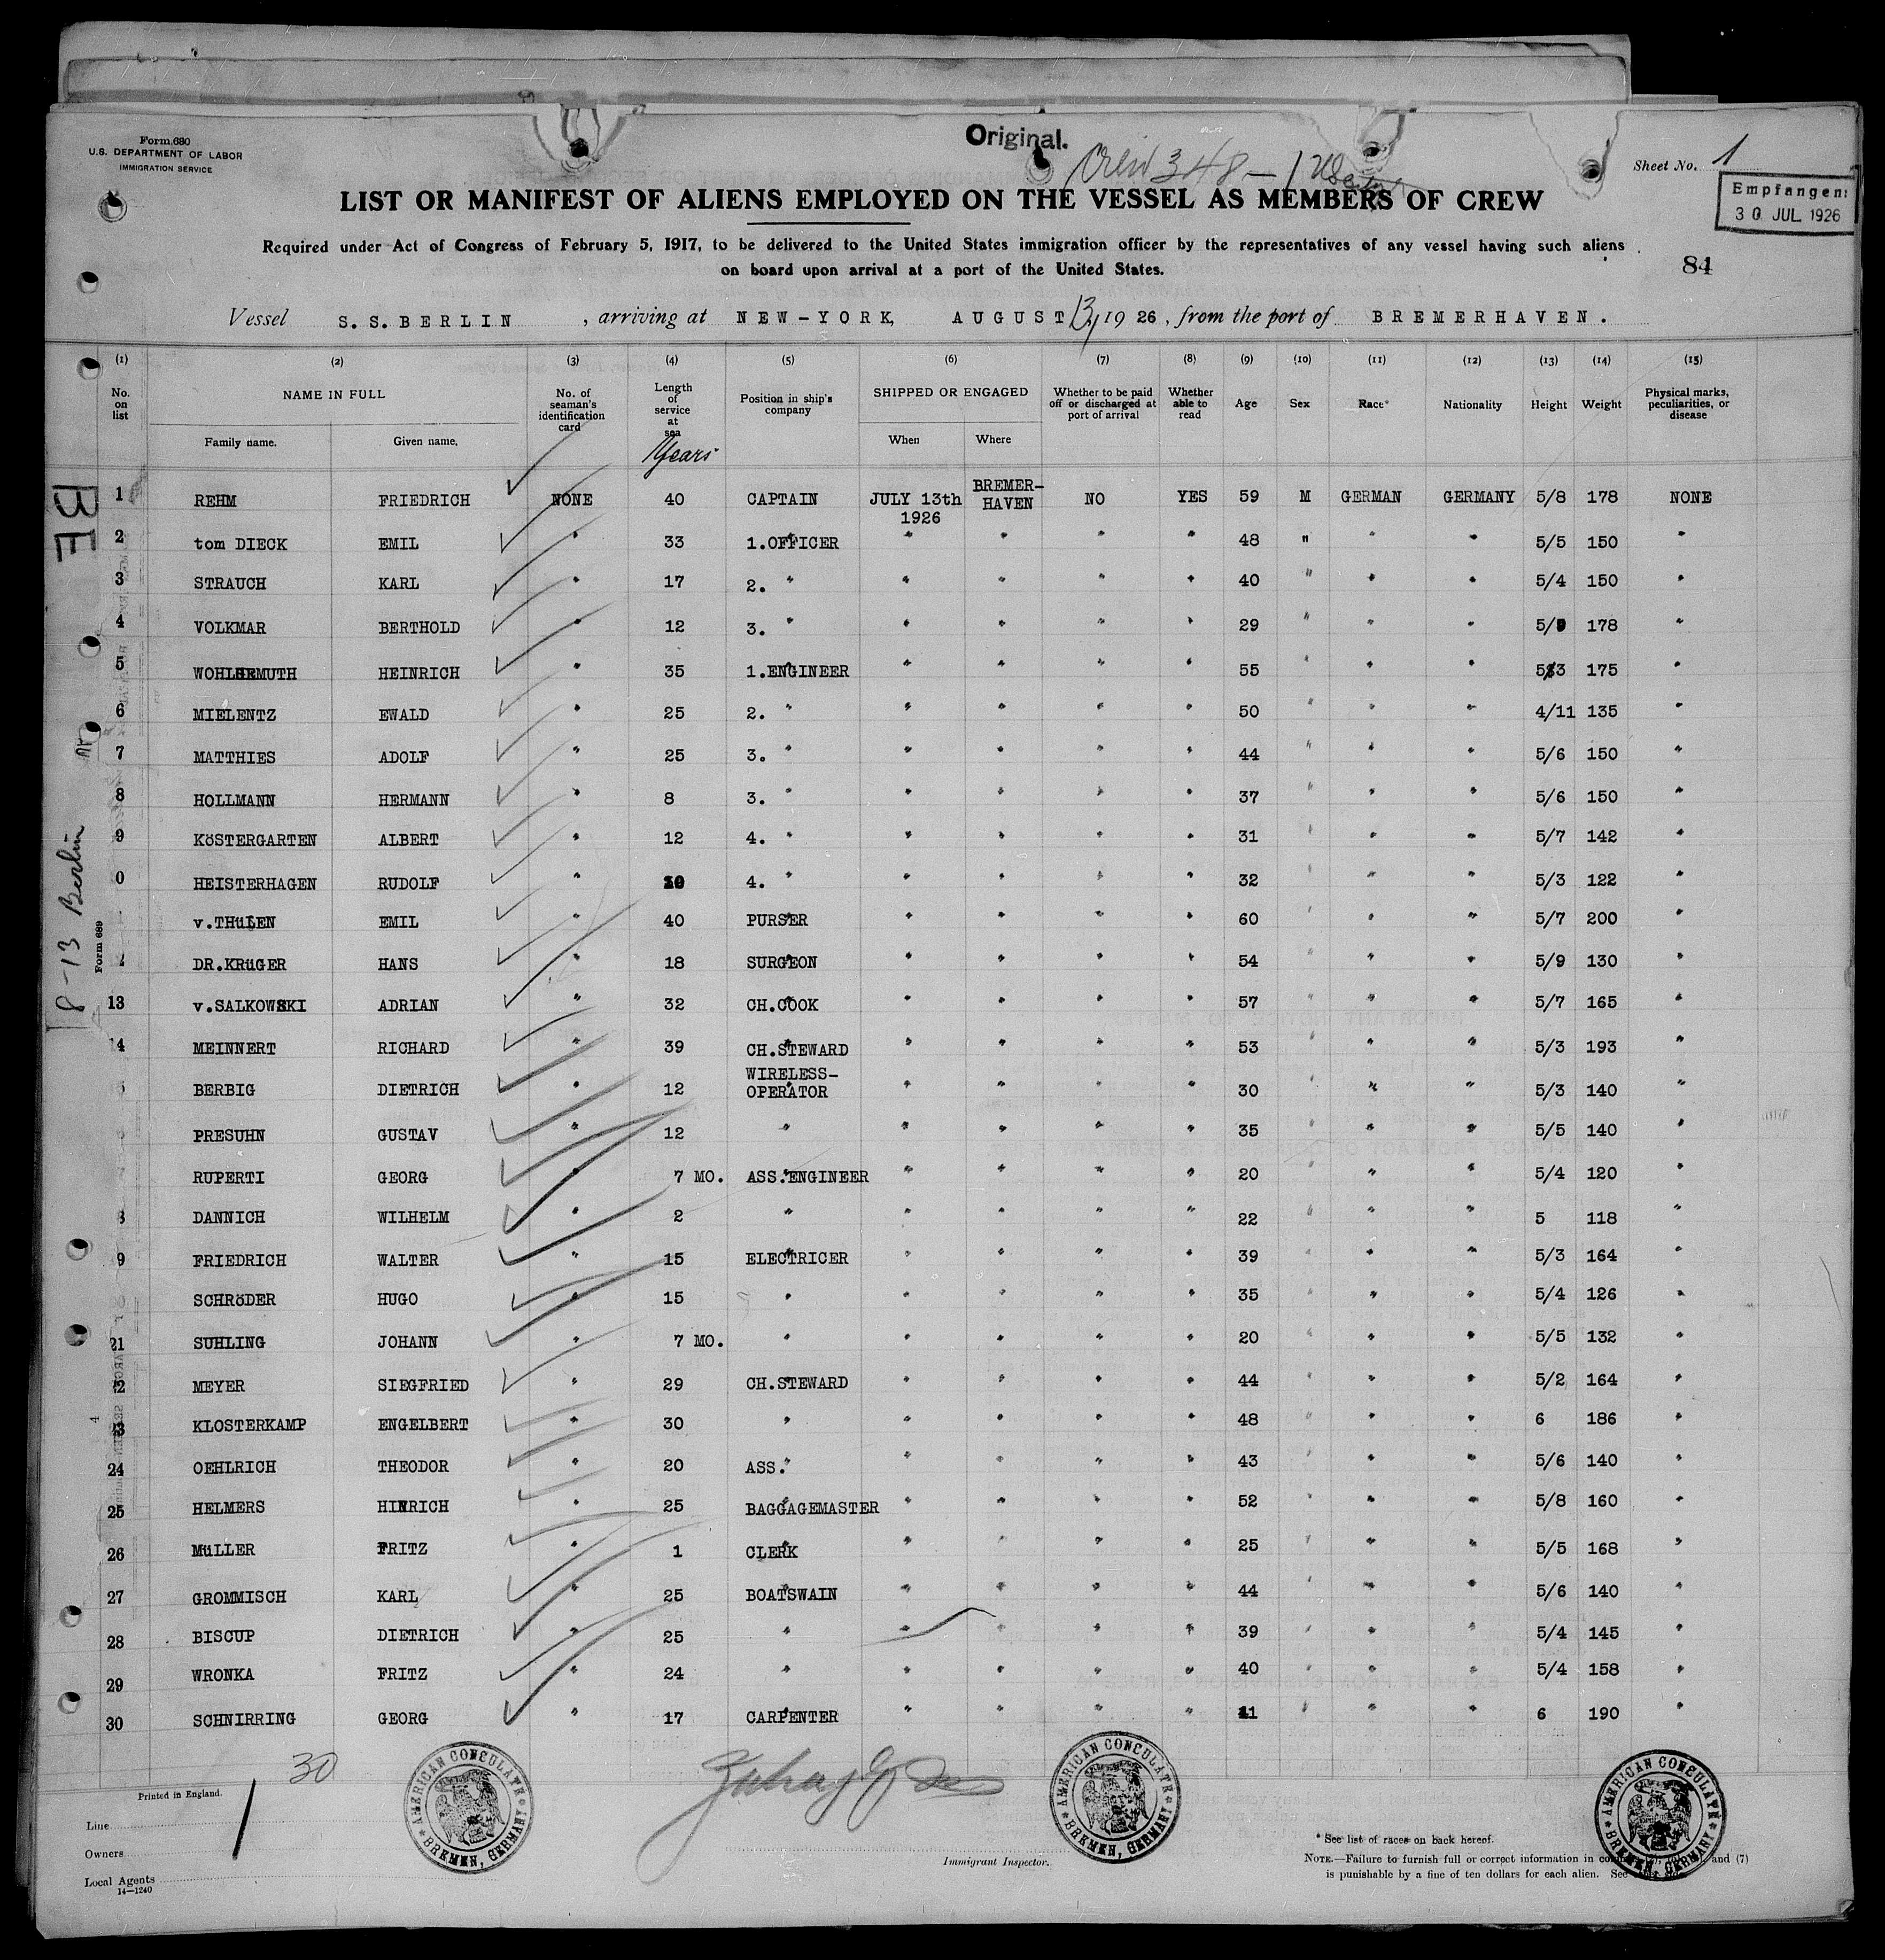 Original.
Form 680
U.S. DEPARTMENT OF LABOR
IMMIGRATION SERVICE
Crew 348 – 1
Sheet No. 1
Empfangen:
30 JUL 1926
LIST OR MANIFEST OF ALIENS EMPLOYED ON THE VESSEL AS MEMBERS OF CREW
Required under Act of Congress of February 5, 1917, to be delivered to the United States immigration officer by the representatives of any vessel having such aliens
on board upon arrival at a port of the United States.
84
Vessel S.S.BERLIN, arriving at NEW-YORK, AUGUST 13, 1926, from the port of BREMERHAVEN.
(1) (2) (3) (4) (5) (6) (7) (8) (9) (10) (11) (12) (13) (14) (15)
No. on list NAME IN FULL Family name. Given name. No. of seaman's identification card Length of service at sea Years Position in ship's company SHIPPED OR ENGAGED When Where Whether to be paid off or discharged at port of arrival Whether able to read Age Sex Race* Nationality Height Weight Physical marks, peculiarities, or disease
1 REHM FRIEDRICH NONE 40 CAPTAIN JULY 13th 1926 BREMER-HAVEN NO YES 59 M GERMAN GERMANY 5/8 178 NONE
2 tom DIECK EMIL " 33 1.OFFICER " " " " 48 " " " 5/5 150 "
3 STRAUCH KARL " 17 2. " " " " " 40 " " " 5/4 150 "
4 VOLKMAR BERTHOLD " 12 3. " " " " " 29 " " " 5/9 178 "
5 HEINRICH " 35 1.ENGINEER " " " " 55 " " " 5/3 175 "
6 MIELENTZ EWALD " 25 2. " " " " " 50 " " " 4/11 135 "
7 MATTHIES ADOLF " 25 3. " " " " " 44 " " " 5/6 150 "
8 HOLLMANN HERMANN " 8 3. " " " " " 37 " " " 5/6 150 "
9 KöSTERGARTEN ALBERT " 12 4. " " " " " 31 " " " 5/7 142 "
0 HEISTERHAGEN RUDOLF " 4. " " " " " 32 " " " 5/3 122 "
v.THüLEN EMIL " 40 PURSER " " " " 60 " " " 5/7 200 "
2 DR.KRüGER HANS " 18 SURGEON " " " " 54 " " " 5/9 130 "
13 v.SALKOWSKI ADRIAN " 32 CH.COOK " " " " 57 " " " 5/7 165 "
14 MEINNERT RICHARD " 39 CH.STEWARD " " " " 53 " " " 5/3 193 "
5 BERBIG DIETRICH " 12 WIRELESS-OPERATOR " " " " 30 " " " 5/3 140 "
PRESUHN GUSTAV " 12 " " " " " 35 " " " 5/5 140 "
RUPERTI GEORG " 7 MO. ASS.ENGINEER " " " " 20 " " " 5/4 120 "
8 DANNICH WILHELM " 2 " " " " " 22 " " " 5 118 "
9 FRIEDRICH WALTER " 15 ELECTRICER " " " " 39 " " " 5/3 164 "
SCHRöDER HUGO " 15 " " " " " 35 " " " 5/4 126 "
21 SUHLING JOHANN " 7 MO. " " " " " 20 " " " 5/5 132 "
2 MEYER SIEGFRIED " 29 CH.STEWARD " " " " 44 " " " 5/2 164 "
3 KLOSTERKAMP ENGELBERT " 30 " " " " " 48 " " " 6 186 "
24 OEHLRICH THEODOR " 20 ASS. " " " " " 43 " " " 5/6 140 "
25 HELMERS HINRICH " 25 BAGGAGEMASTER " " " " 52 " " " 5/8 160 "
26 MüLLER FRITZ " 1 CLERK " " " " 25 " " " 5/5 168 "
27 GROMMISCH KARL " 25 BOATSWAIN " " " " 44 " " " 5/6 140 "
28 BISCUP DIETRICH " 25 " " " " " 39 " " " 5/4 145 "
29 WRONKA FRITZ " 24 " " " " " 40 " " " 5/4 158 "
30 SCHNIRRING GEORG " 17 CARPENTER " " " " " " " 6 190 "
BE
8-13 Berlin
Form 689
30
1
Printed in England.
Line
Owners
Local Agents
14—1240
AMERICAN CONSULATE BREMEN, GERMANY
AMERICAN CONSULATE BREMEN, GERMANY
AMERICAN CONSULATE BREMEN, GERMANY
Immigrant Inspector.
* See list of races on back hereof.
NOTE.—Failure to furnish full or correct information in and (7)
is punishable by a fine of ten dollars for each alien. See